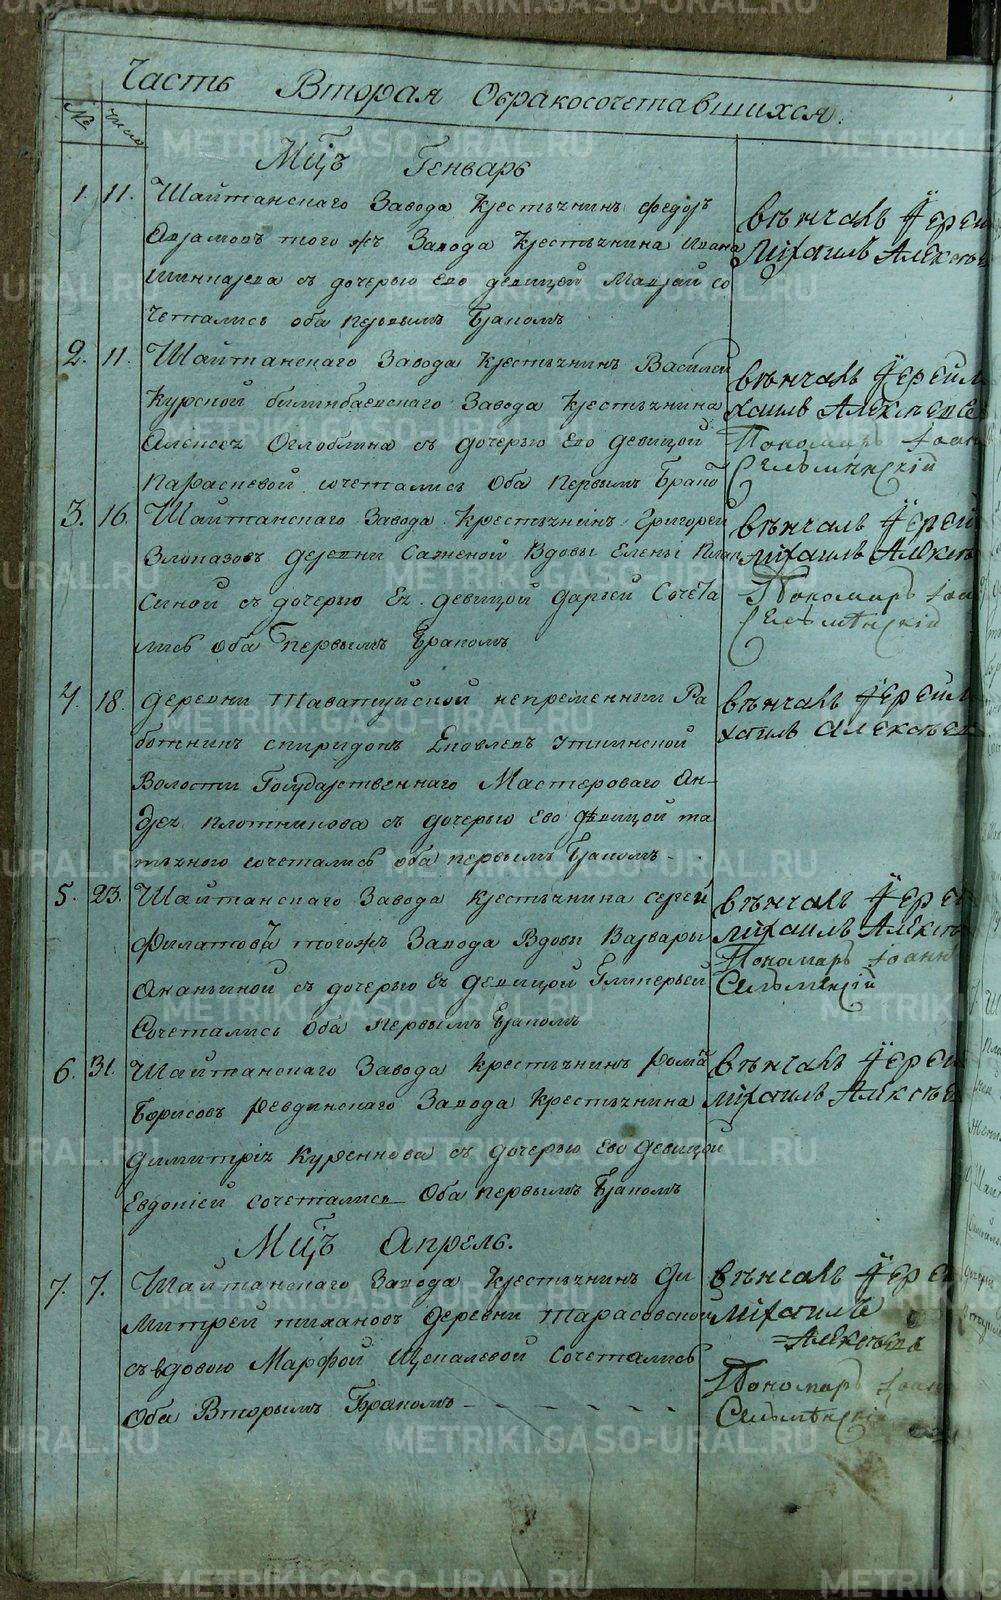 Часть Вторая Обракосочетавшихся.
№ число
Мцъ Генварь
1. 11. Шайтанскаго Завода Крестьянинъ Федоръ
Аврамовъ того жъ Завода Крестьянина Ивана
съ дочерью Ево девицей Маврой со
четались оба первымъ Бракомъ
Вѣнчалъ Іерей
Михаилъ Алексѣев
2. 11. Шайтанскаго Завода Крестьянинъ Василей
Курской билимбаевскаго Завода Крестьянина
Алексея Оглоблина съ дочерью Ево девицой
Парасковей сочетались Оба Первымъ Брако
Вѣнчалъ Іерей Ми
хаилъ Алексѣев
Пономарь Іоан
Сельменскій
3. 16. Шайтанскаго Завода Крестьянинъ Григорей
Злоказовъ деревни Саженой Вдовы Елены
синой съ дочерью Ея девицой Дарьей Сочета
лись оба Первымъ Бракомъ
Вѣнчалъ Іерей
Михаилъ Алексѣ
Пономарь Іоа
Сельмѣнскій
4. 18. деревни Таватуйской непременный Ра
ботникъ спиридонъ Яковлевъ Уткинской
Волости Государственнаго Мастероваго Ан-
дрея Плотникова съ дочерью Ево девицой та
тьяною сочетались оба первымъ Бракомъ.
Вѣнчалъ Іерей Ми
хаилъ Алексѣев
5. 23. Шайтанскаго Завода крестьянина сергей
Филатова тогожъ Завода Вдовы Варвары
Ананьиной съ дочерью Ея Девицой Гликерьей
Сочетались Оба Первымъ Бракомъ
Вѣнчалъ Іерей
Михаилъ Алексѣ
Пономарь Іоанн
Сельменскій
6. 31. Шайтанскаго Завода Крестьянинъ Рома
Борисовъ Ревдинскаго Завода Крестьянина
Димитрія Куренкова съ дочерью Ево Девицой
Евдокіей сочетались Оба Первымъ Бракомъ
Вѣнчалъ Іерей
Михаилъ Алексѣев
Мцъ Апрель.
7. 7. Шайтанскаго Завода Крестьянинъ Ди
митрей тихановъ Деревни Тарасовской
съ вдовою Марфой Щекалевой Сочетались
Оба Вторымъ Бракомъ - - - - - -
Вѣнчалъ Іерей
Михаилъ
=Алексѣевъ
Пономарь Іоанн
Сельмѣнскій
METRIKI.GASO-URAL.RU